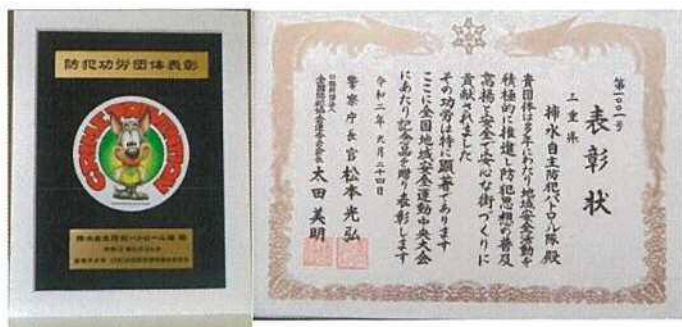 防犯功労団体表彰
CRIME PREVENTION
第一〇一号
表彰状
三重県
柿水自主防犯パトロール隊 殿
貴団体は多年にわたり地域安全活動を
積極的に推進し防犯思想の普及
高揚と安全で安心な街づくりに
貢献されました
その功労は特に顕著であります
ここに全国地域安全運動中央大会
にあたり記念品を贈り表彰します
令和二年 九月二十四日
警察庁長官 松本光弘
太田美明